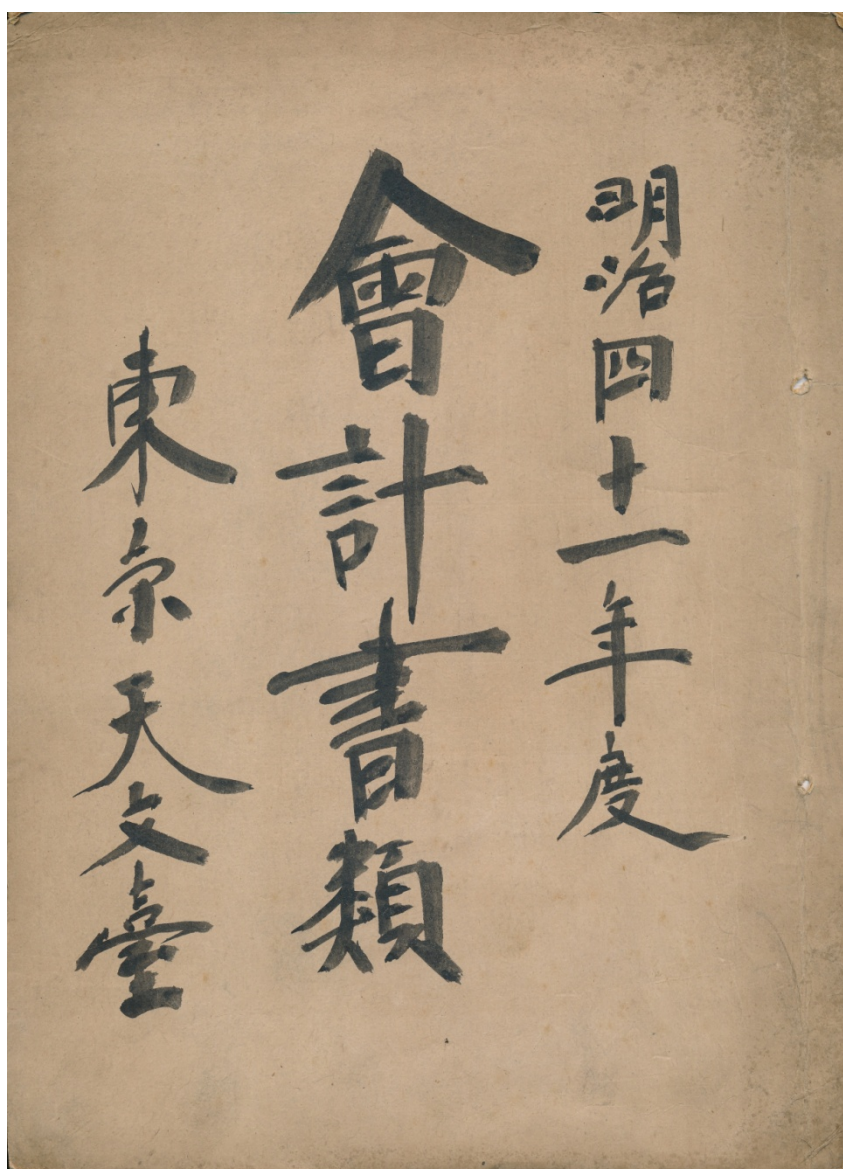 明治四十一年度
會計書類
東京天文臺